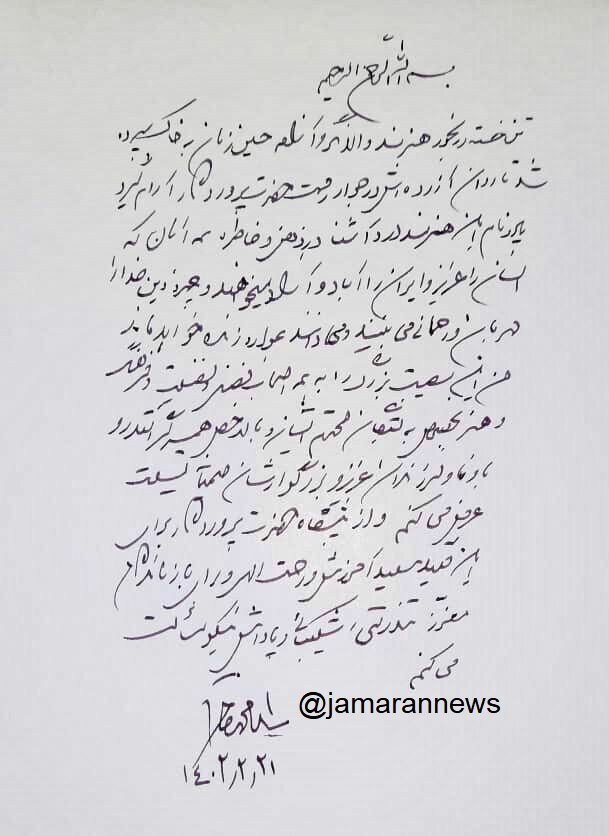 بسم الله الرحمن الرحیم
تن خسته و رنجور هنرمند والاگهر و آزاده حسین زمان به خاک سپرده
شد تا روان آزرده اش در جوار رحمت حضرت پروردگار آرام گیرد
یاد و نام این هنرمند دردآشنا در ذهن و خاطره همه آنان که
انسان را عزیز و ایران را آباد و آزاد میخواهند و چهره دین خدا را
مهربان و رحمانی می بینند و می دانند همواره زنده خواهد ماند
من این مصیبت بزرگ را به همه اصحاب فضل و فضیلت و فرهنگ
و هنر بخصوص به بستگان محترم ایشان و بالاخص همسر گرانقدر و
باوفا و فرزندان عزیز و بزرگوارشان صمیمانه تسلیت
عرض می کنم و از پیشگاه حضرت پروردگار برای
این فقید سعید آمرزش و رحمت الهی و برای بازماندگان
معزز تندرستی، شکیبائی و پاداش نیکو مسألت
می کنم
سید محمد خاتمی
۱۴۰۲/۲/۲۱
@jamarannews